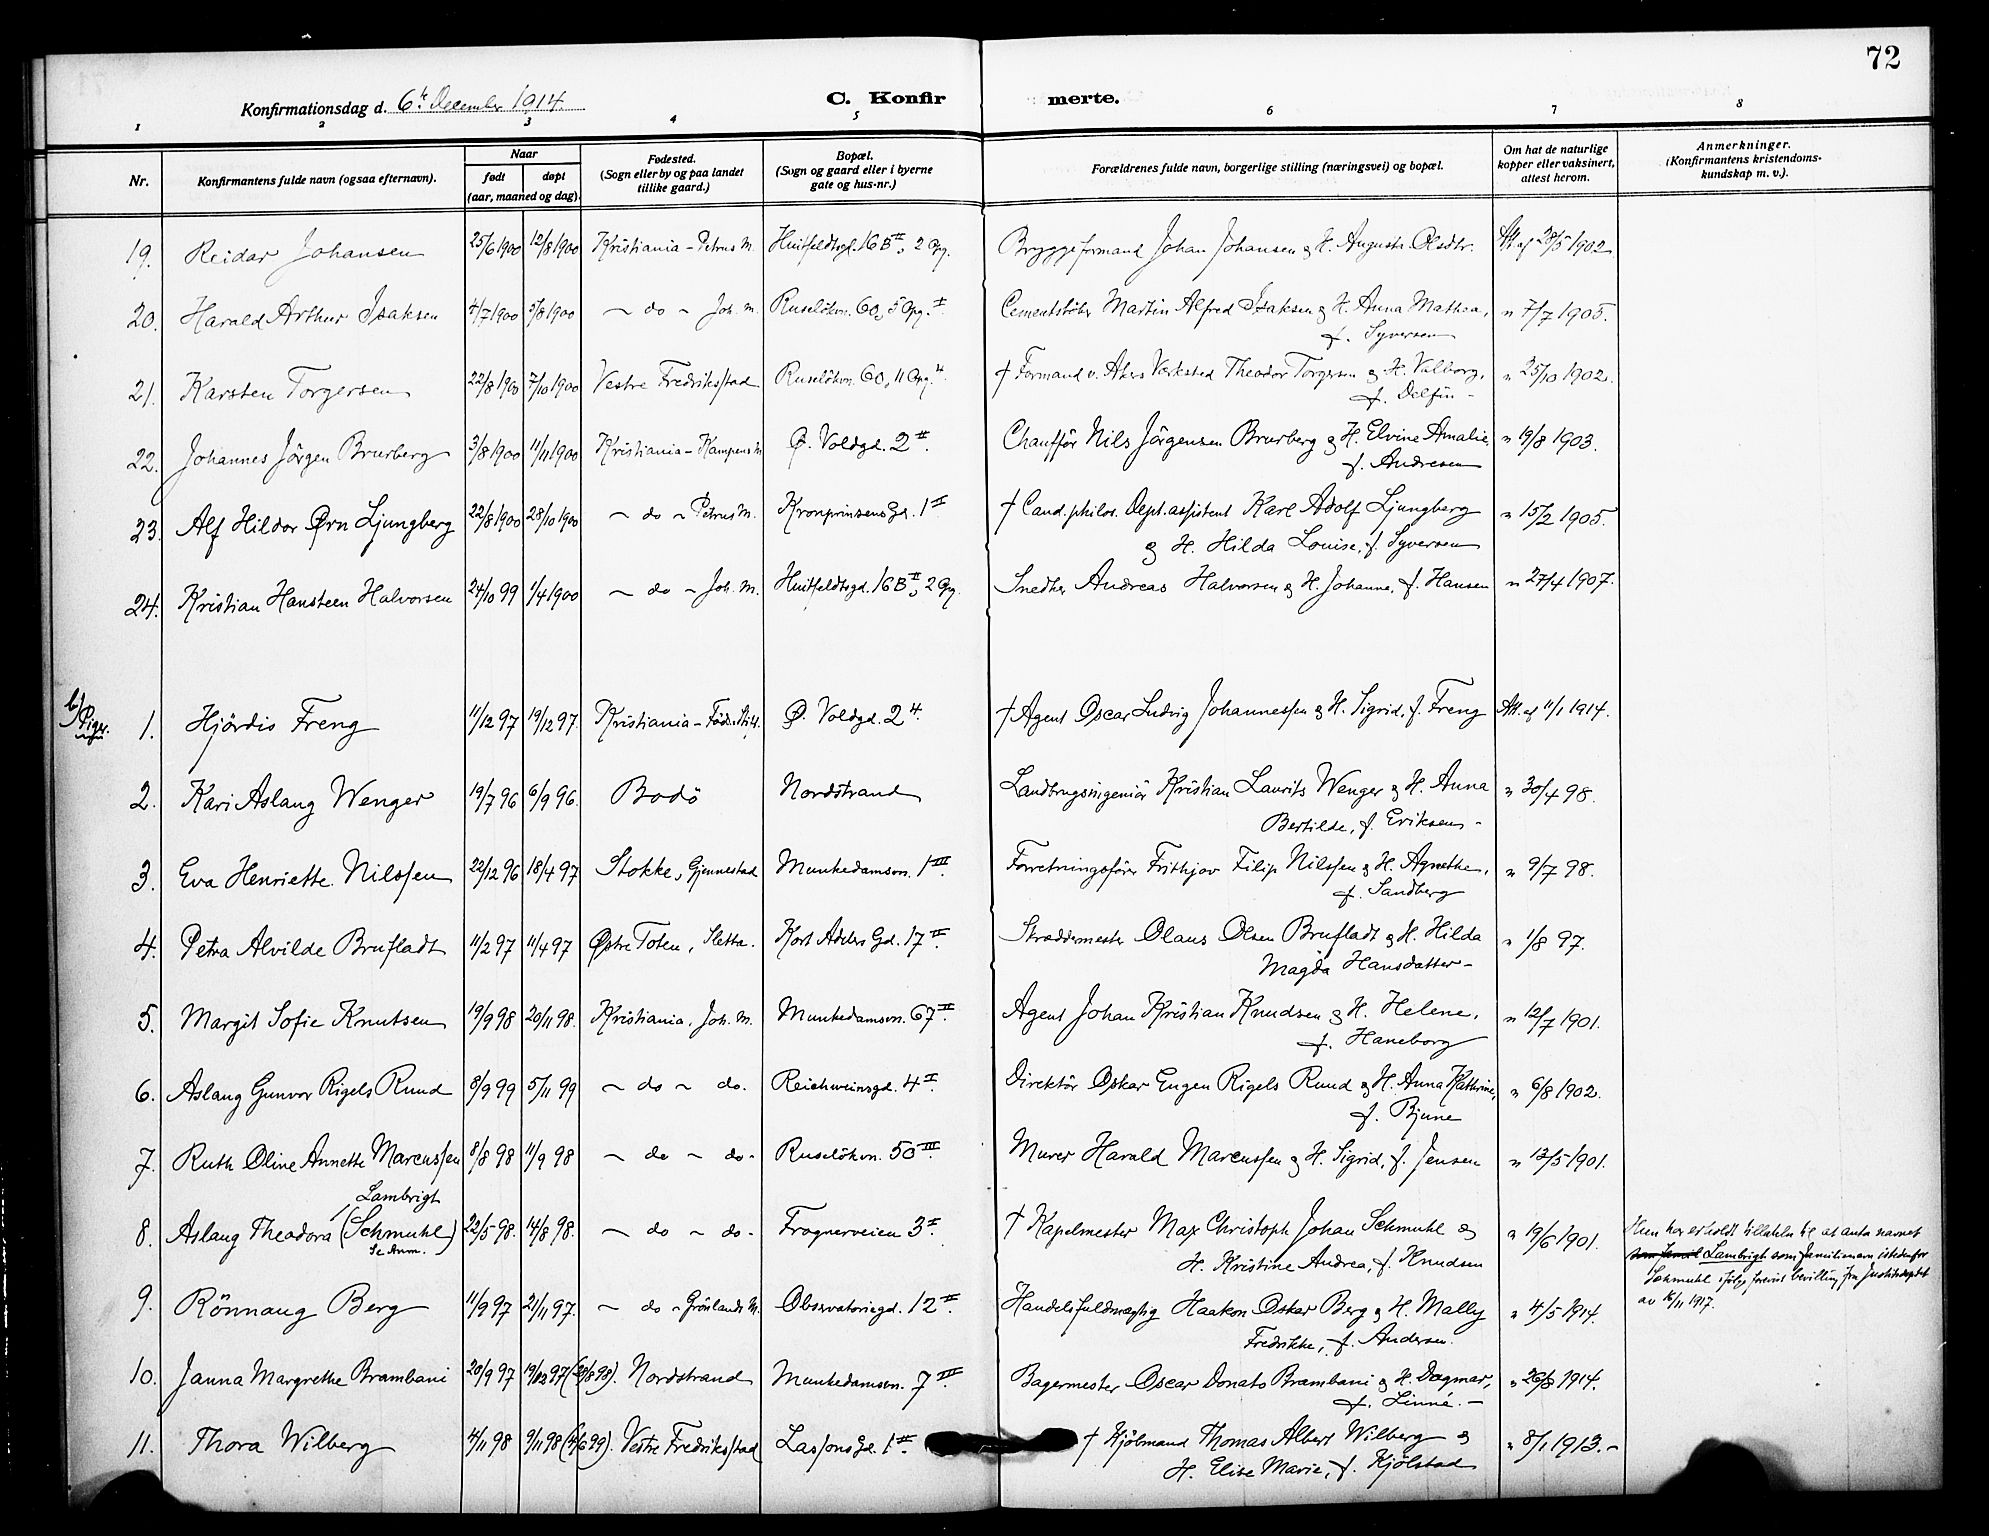 72
Konfirmationsdag d. 6te December 1914.
C. Konfirmerte.
1 2 3 4 5 6 7 8
Nr.
Konfirmantens fulde navn (ogsaa efternavn).
Naar
født døpt
(aar, maaned og dag).
Fødested.
(Sogn eller by og paa landet
tillike gaard.)
Bopæl.
(Sogn og gaard eller i byerne
gate og hus-nr.)
Forældrenes fulde navn, borgerlige stilling (næringsvei) og bopæl.
Om hat de naturlige
kopper eller vaksinert,
attest herom.
Anmerkninger.
(Konfirmantens kristendoms-
kundskap m. v.).
19. Reidar Johansen 25/6 1900 12/8 1900 Kristiania - Petrus M. Huitfeldtsgd. 16 B II, 2 Opg. Bryggeformand Johan Johansen & H. Augusta Olsdtr. Att. af 28/5 1902
20. Harald Arthur Isaksen 4/7 1900 5/8 1900 ~ do ~ Joh. M. Ruselökvn. 60, 5 Opg. I Cementstöber Martin Alfred Isaksen & H. Anna Mathea, " 7/7 1905.
f. Syversen
21. Karsten Torgersen 22/8 1900 7/10 1900 Vestre Fredriksstad Ruselökvn. 60, 11 Opg. 4. † Formand v. Akers Værksted Theodor Torgersen & H. Valborg, " 25/10 1902.
f. Delfin -
22. Johannes Jörgen Brurberg 3/8 1900 11/11 1900 Kristiania - Kampens M Ø. Voldgd. 2 II. Chaufför Nils Jörgensen Brurberg & H. Elvine Amalie, " 19/8 1903.
f. Andresen
23. Alf Hildor Ørn Ljungberg 22/8 1900 28/10 1900 ~ do ~ Petrus M. Kronprinsens Gd. 1 II † Cand. philos. Dept.assistent Karl Adolf Ljungberg " 15/2 1905.
& H. Hilda Louise, f. Syversen
24. Kristian Hansteen Halvorsen 24/10 99 1/4 1900 ~ do ~ Joh. M. Huitfeldtsgd. 16 B II, 2 Opg. Snedker Andreas Halvorsen & H. Johanne, f. Hansen " 27/4 1907.
b) Piger.
1. Hjördis Freng 11/12 97 19/12 97. Kristiania - Föds.stift. Ø. Voldgd. 2 4. † Agent Oscar Ludvig Johannessen & H. Sigrid, f. Freng Att. af 11/1 1914.
2. Kari Aslaug Wenger 19/7 96 6/9 96. Bodö Nordstrand Landbrugsingeniör Kristian Laurits Wenger & H. Anna " 30/4 98.
Bertilde, f. Eriksen -
3. Eva Henriette Nilssen 22/12 96 18/4 97 Stokke, Gjennestad Munkedamsvn. 1 III. Forretningsförer Frithjov Filip Nilssen & H. Agnethe, " 9/7 98.
f. Sandberg
4. Petra Alvilde Brufladt 11/2 97 11/4 97 Østre Toten, Sletta. Kort Adelers Gd. 17 II. Skræddermester Olaus Olsen Brufladt & H. Hilda " 1/8 97.
Magda Hansdatter -
5. Margit Sofie Knutsen 19/9 98 20/11 98. Kristiania, Joh. M. Munkedamsvn. 67 II. Agent Johan Kristian Knudsen & H. Helene, " 12/7 1901.
f. Haneborg
6. Aslaug Gunvor Rigels Ruud 8/9 99 5/11 99 ~ do ~ do. Reichweinsgd. 4 I. Direktör Oskar Eugen Rigels Ruud & H. Anna Kathrine, " 6/8 1902.
f. Bjune
7. Ruth Oline Annette Marcussen 8/8 98 11/9 98 ~ do ~ do - Ruselökvn. 50 III. Murer Harald Marcussen & H. Sigrid, f. Jensen " 13/5 1901.
Lambrigt
8. Aslaug Theodora (Schmuhl) 22/5 98. 14/8 98. ~ do ~ do - Frognerveien 3 I. † Kapelmester Max Christoph Johan Schmuhl & " 19/6 1901.
Se Anm.
H. Kristine Andrea, f. Knudsen
Hun har erholdt tilladelse til at anta navnet
Lambrigt som familienavn istedenfor
Schmuhl ifölge forevist bevilling fra Justitsdeptet
av 16/11 1917.
9. Rönnaug Berg 11/9 97 21/11 97. ~ do ~ Grönlands M. Observatoriegd. 12 II. Handelsfuldmægtig Haakon Oskar Berg & H. Mally " 4/5 1914.
Fredrikke, f. Andersen.
10. Janna Margrethe Brambani 20/9 97 19/12 97 (28/8 98). Nordstrand Munkedamsvn. 7 III. Bagermester Oscar Donato Brambani & H. Dagmar, " 26/8 1914.
f. Linné. -
11. Thora Wilberg 4/11 98 9/11 98 (4/6 99). Vestre Fredriksstad Lassons Gd. 1 II. † Kjöbmand Thomas Albert Wilberg & " 8/1 1913. -
H. Elise Marie, f. Kjölstad